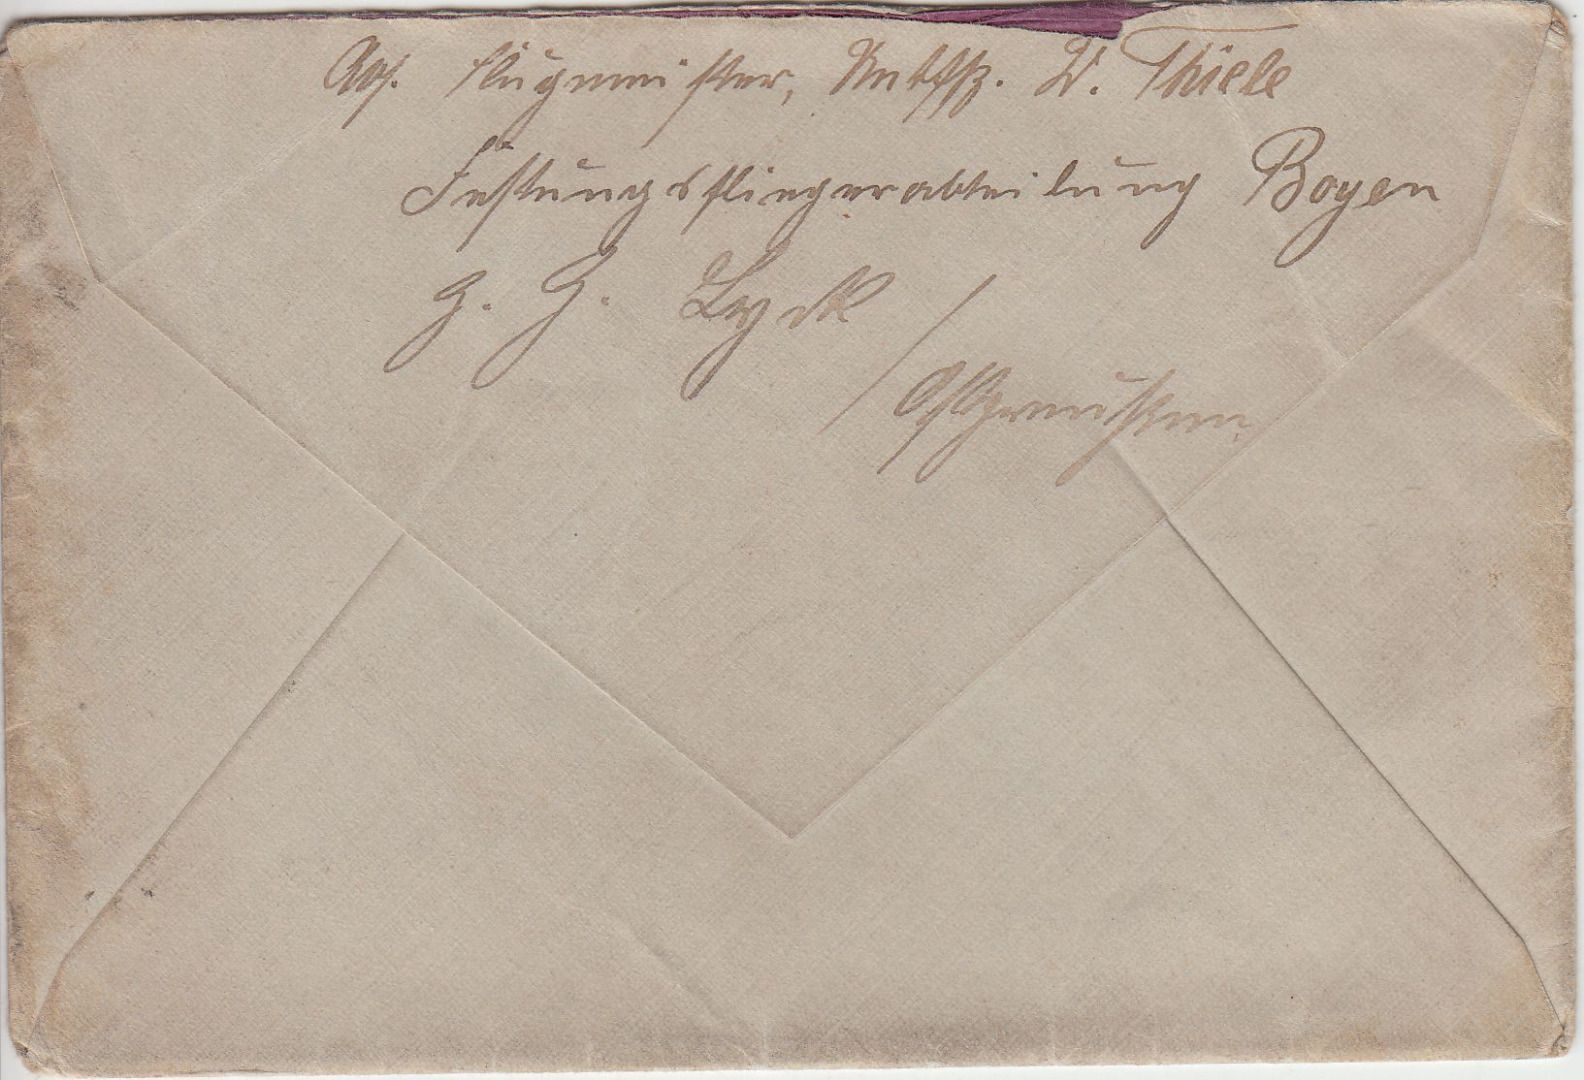 Abs. Flugmeister, Untffz. W. Thiele
Festungsfliegerabteilung Boyen
z. Z. Lyck /
Ostpreußen.